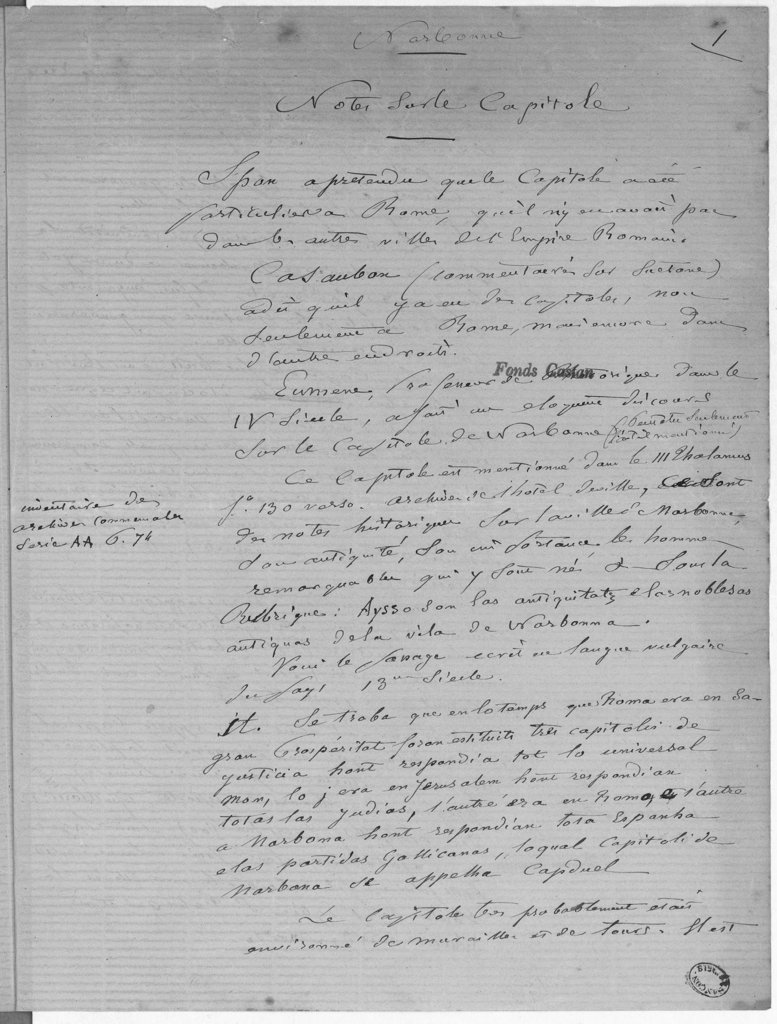 Narbonne
1
Notes sur le Capitole
Spon a pretendu que le Capitole a été
particulier a Rome, qu'il n'y en avait pas
dans les autres villes de l'Empire Romain.
Casaubon (commentaires sur Suetone)
a dit qu'il y a eu des capitoles, non
seulement a Rome, mais encore dans
d'autre endroits.
Fonds Castan
Eumene, Professeur de rhétorique dans le
IV Siecle, a fait un eloquent discours
sur le Capitole de Narbonne (Peut etre seulement
mentionné)
Ce Capitole est mentionné dans le III Thalamus
f.º 130 verso. archives de l'hotel de ville, Ce sont
des notes historiques sur la ville de Narbonne,
son antiquité, son importance les hommes
remarquables qui y sont nés & sous la
Rubrique: Aysso son las antiquitatz e las noblesas
antiquas de la vila de Narbonna.
inventaire des
archives communales
Serie AA P. 74
Voici le passage ecrit en langue vulgaire
du pays 13me Siecle.
It. Se troba que en lo temps que Roma era en sa
gran Prospéritat foron estituits tres capitolis de
justicia hont respondia tot lo universal
mon, lo j era en Jerusalem hont respondian
totas las judias, l'autré era en Roma, e l'autre
a Narbona hont respondian tota Espanha
e las partidas Gallicanas, loqual Capitoli de
Narbona se appelha Capduel
Le Capitole tres probablement était
environné de murailles et de tours. Il est